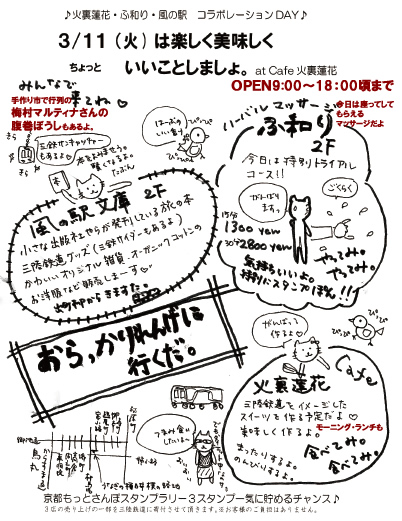 ♪火裏蓮花・ふ和り・風の駅　コラボレーションDAY♪
3/11（火）は楽しく美味しく
ちょっと　いいことしましょ。at Cafe 火裏蓮花
OPEN9:00〜18:00頃まで
みんなで
来てね♡
手作り市で行列の
梅村マルティナさんの
腹巻ぼうしもあるよ。
今日は座ってして
もらえる
マッサージだよ
ふ和り
2F
今日は特別トライアル
コース!!
がんばり
ますっ
ごくらく
15分
1300 yen
30分 2800 yen
気持ちいいよ。
やってみ。
やってみ。
風の駅文庫 2F
小さな出版社でやら発刊している旅の本
三陸鉄道グッズ(三鉄サイダーもあるよ)
かわいいオリジナル雑貨・オーガニックコットンの
お洋服など販売しまーす♡
おらっかりれんげに
行くだ。
がんばって
作るよ♡
Cafe
火裏蓮花
三陸鉄道をイメージした
スイーツを作る予定だよ♡
美味しく作るよ。
モーニング・ランチも
食べてみ。
食べてみ。
まったりするよ。
のんびりするよ。
烏丸
京都もっとさんぽスタンプラリー３スタンプ一気に貯めるチャンス♪
3店の売り上げの一部を三陸鉄道に寄付させて頂きます。※お客様のご負担はありません。